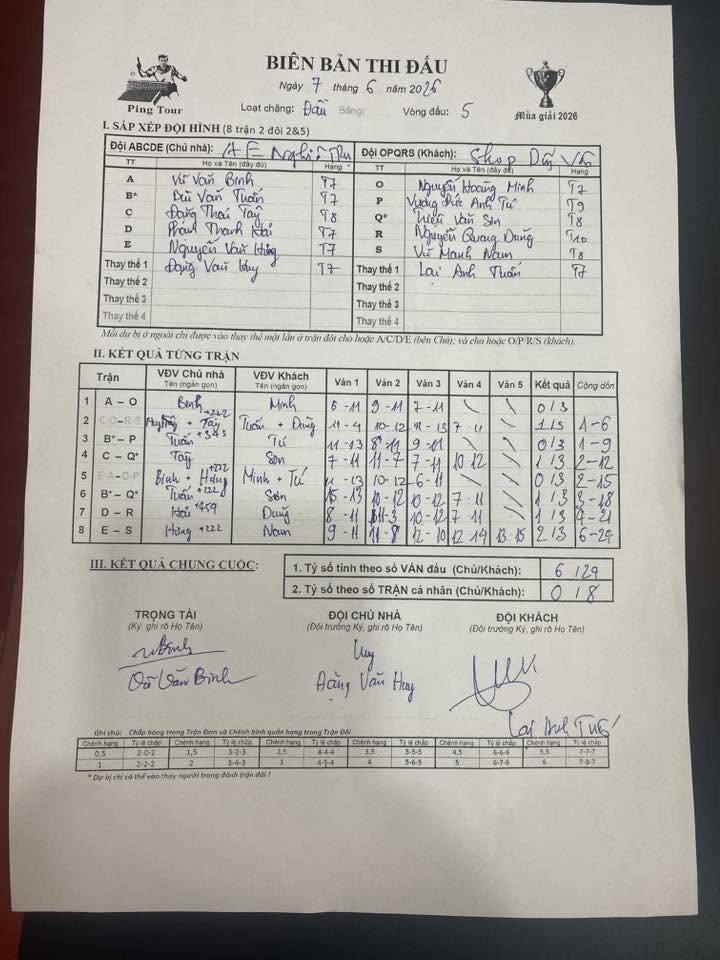 BIÊN BẢN THI ĐẤU
Ngày 7 tháng 6 năm 2026
Ping Tour
Loạt chặng: Đầu Bảng: Vòng đấu: 5
Mùa giải 2026
I. SẮP XẾP ĐỘI HÌNH (8 trận 2 đôi 2&5)
Đội ABCDE (Chủ nhà): AE Nghĩa Đội OPQRS (Khách): Shop
TT Họ và Tên (đầy đủ) Hạng * TT Họ và Tên (đầy đủ) Hạng
A Vũ Văn Bình T7 O Nguyễn Hoàng Minh T7
B* Bùi Văn Tuấn T7 P Vương Đức Anh Tú T9
C Đặng Thái Tây T8 Q* Triệu Văn Sơn T8
D Phạm Thanh Hải T7 R Nguyễn Quang Dũng T10
E Nguyễn Văn Hùng T7 S Vũ Mạnh Nam T8
Thay thế 1 Đặng Văn Huy T7 Thay thế 1 Lại Anh Tuấn T7
Thay thế 2 Thay thế 2
Thay thế 3 Thay thế 3
Thay thế 4 Thay thế 4
Mỗi dự bị ở ngoài chỉ được vào thay thế một lần ở trận đôi cho hoặc A/C/D/E (bên Chủ); và cho hoặc O/P/R/S (khách).
II. KẾT QUẢ TỪNG TRẬN
Trận VĐV Chủ nhà Tên (ngắn gọn) VĐV Khách Tên (ngắn gọn) Ván 1 Ván 2 Ván 3 Ván 4 Ván 5 Kết quả Cộng dồn
1 A – O Bình Minh 6 -11 9 -11 7 -11 \ \ 0/3
2 C-O-R-S Tây +222 Tuấn + Dũng 11 -4 10 -12 11 -13 7 -11 \ 1/3 1-6
3 B* – P Tuấn +343 Tú 11 -13 8 -11 9 -11 \ \ 0/3 1-9
4 C – Q* Tây Sơn 7 -11 11 -7 7 -11 10 -12 \ 1/3 2-12
5 E-A-O-P Bình + Hùng +222 Minh + Tú 11 -13 10 -12 6 -11 \ \ 0/3 2-15
6 B* – Q* Tuấn +222 Sơn 15 -13 10 -12 10 -12 7 -11 \ 1/3 3-18
7 D – R Hải +454 Dũng 8 -11 11-3 10 -12 7 -11 \ 1/3 4-21
8 E – S Hùng +222 Nam 9 -11 11 -8 12 -10 12 -14 13 -15 2/3 6-24
III. KẾT QUẢ CHUNG CUỘC:
1. Tỷ số tính theo số VÁN đấu (Chủ/Khách): 6 / 24
2. Tỷ số theo số TRẬN cá nhân (Chủ/Khách): 0 / 8
TRỌNG TÀI ĐỘI CHỦ NHÀ ĐỘI KHÁCH
(Ký, ghi rõ Họ Tên) (Đội trưởng Ký, ghi rõ Họ Tên) (Đội trưởng Ký, ghi rõ Họ Tên)
Bình Huy
Vũ Văn Bình Đặng Văn Huy
Lại Anh Tuấn
Ghi chú: Chấp bóng trong Trận Đơn và Chênh bình quân hạng trong Trận Đôi
Chênh hạng Tỷ lệ chấp Chênh hạng Tỷ lệ chấp Chênh hạng Tỷ lệ chấp Chênh hạng Tỷ lệ chấp Chênh hạng Tỷ lệ chấp Chênh hạng Tỷ lệ chấp
0,5 2-0-2 1,5 3-2-3 2,5 4-4-4 3,5 5-5-5 4,5 6-6-6 5,5 7-7-7
1 2-2-2 2 3-4-3 3 4-5-4 4 5-6-5 5 6-7-6 6 7-8-7
* Dự bị chỉ có thể vào thay người trong đánh trận đôi !